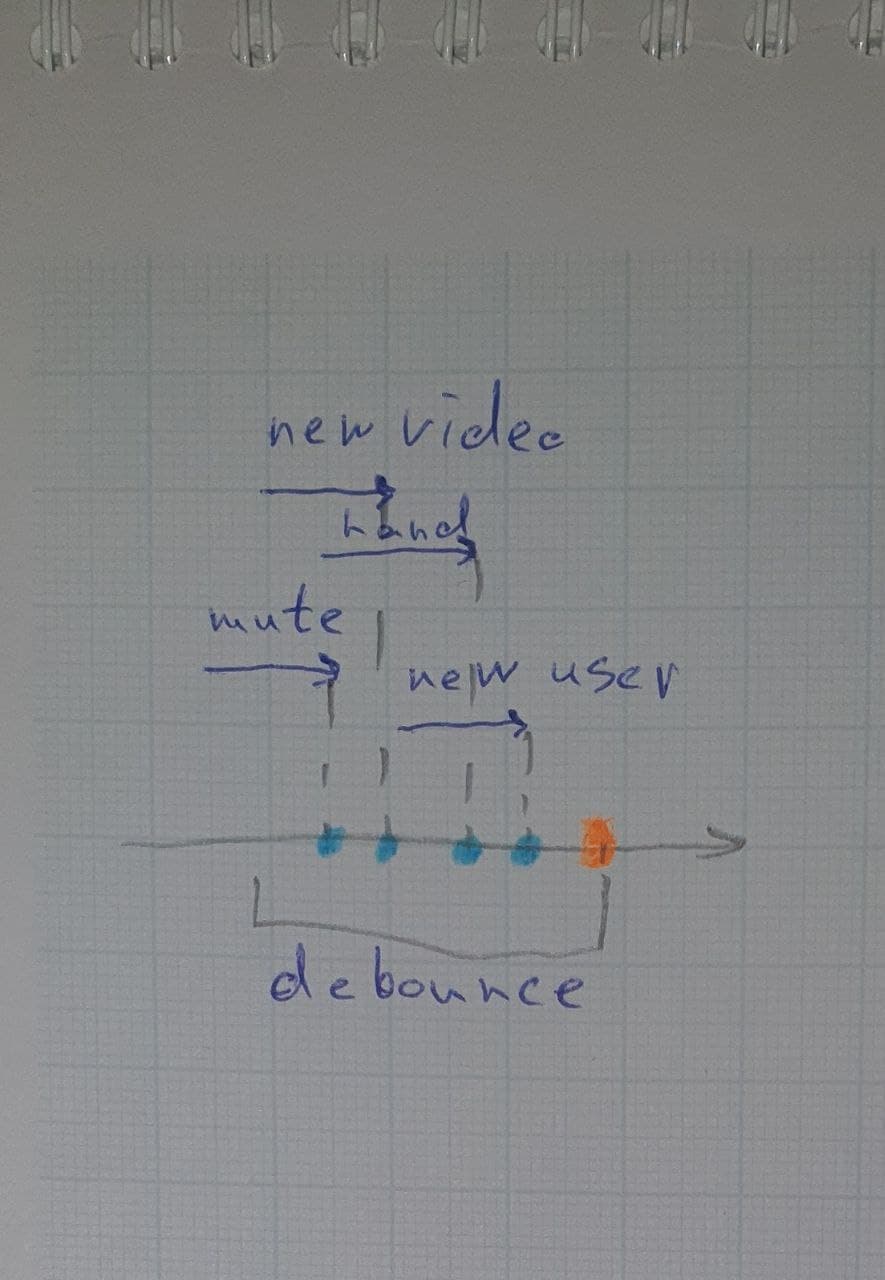 new video
hand
mute
new user
debounce